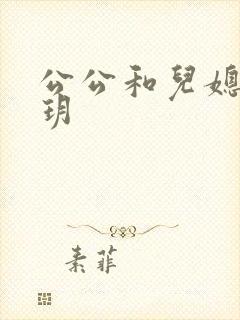 公公和兒媳
玥
素菲